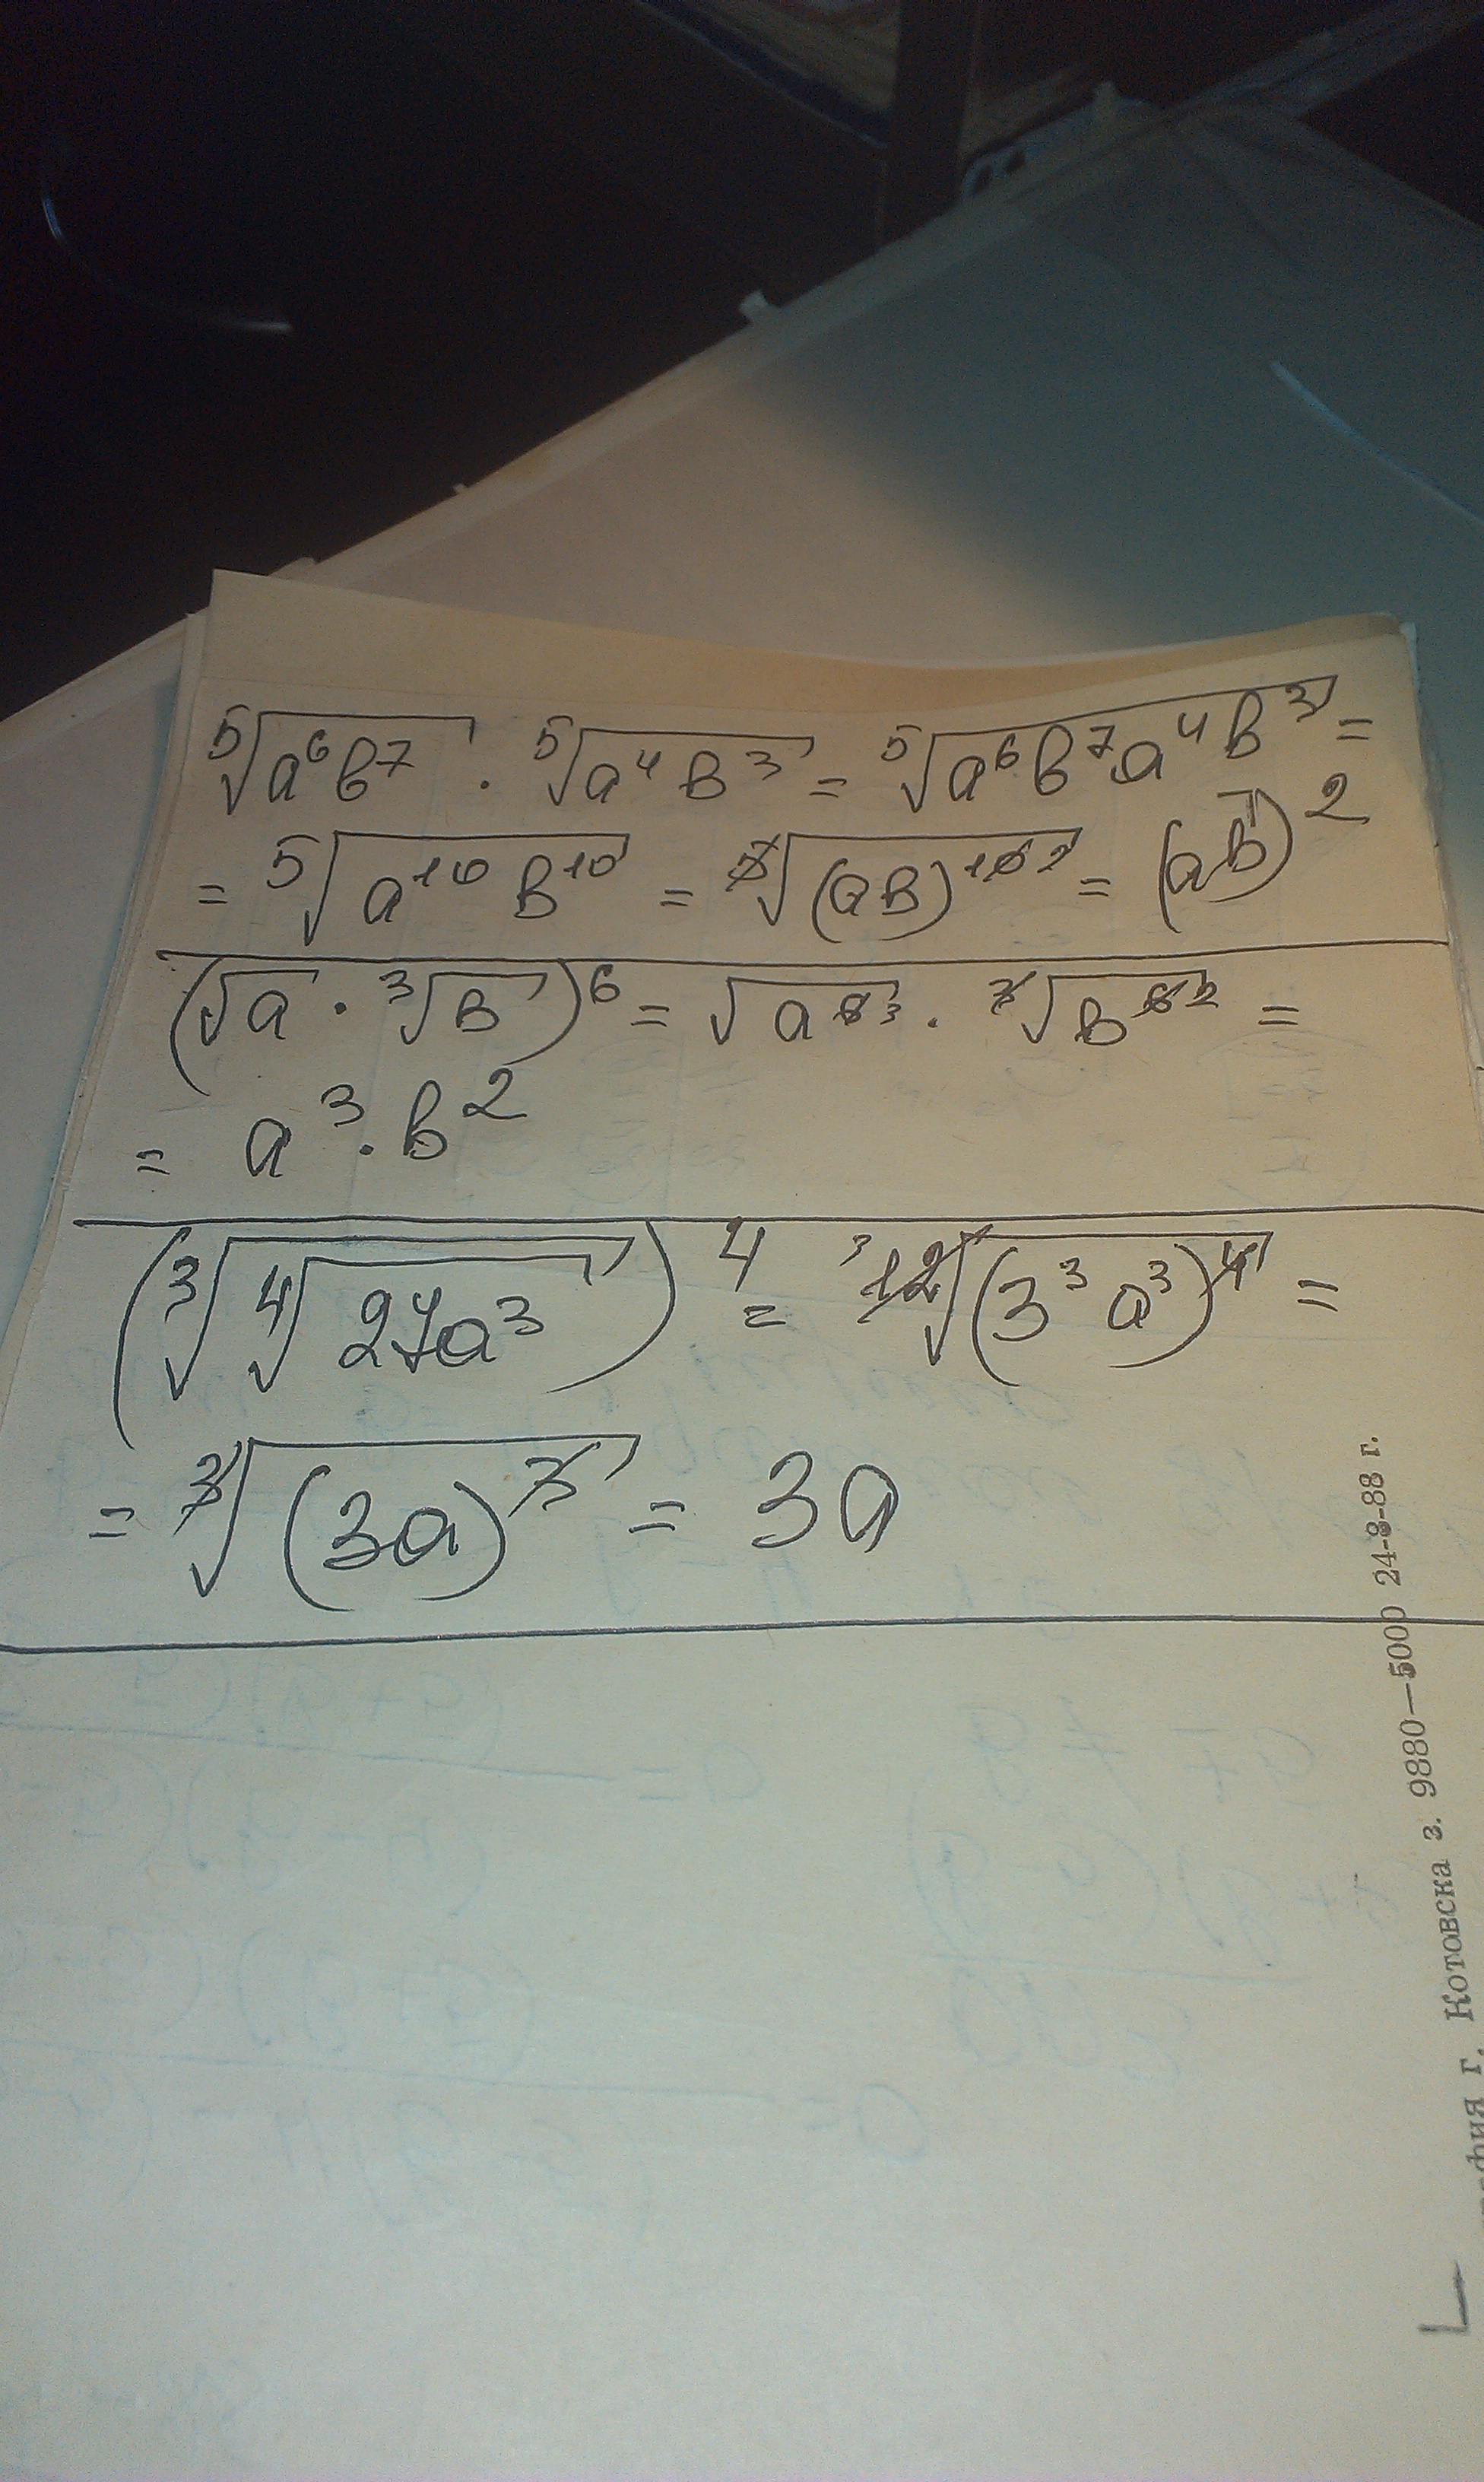 ⁵√(a⁶b⁷) · ⁵√(a⁴b³) = ⁵√(a⁶b⁷a⁴b³) =
= ⁵√(a¹⁰b¹⁰) = ⁵√((ab)¹⁰ ²) = (ab)²
(√a · ³√b)⁶ = √(a⁶ ³) · ³√(b⁶ ²) =
= a³ · b²
(³√(⁴√(27a³)))⁴ = ³ ¹²√((3³a³)⁴) =
= ³√((3a)³) = 3a
г. Котовска з. 9880—5000 24-8-88 г.